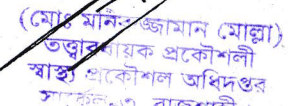 (মোঃ মনিরুজ্জামান মোল্লা)
তত্ত্বাবধায়ক প্রকৌশলী
স্বাস্থ্য প্রকৌশল অধিদপ্তর